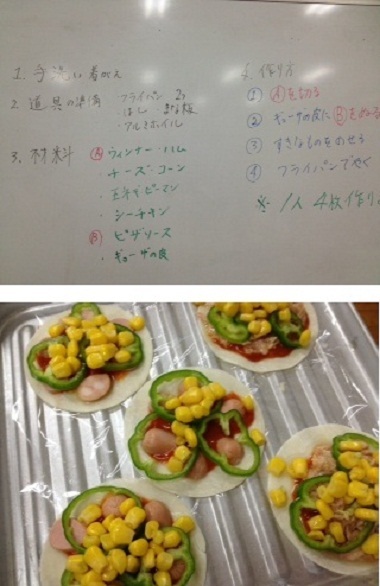 1. 手洗い 着がえ
2. 道具の準備 フライパン 2
・はし
・アルミホイル
3. 材料 Ⓐ ウィンナー・ハム
・チーズ・コーン
・玉ネギ・ピーマン
・シーチキン
Ⓑ ピザソース
・ギョーザの皮
作り方
① Ⓐを切る
② ギョーザの皮に Ⓑをぬる
③ すきなものをのせる
④ フライパンでやく
※ 1人 4枚作り